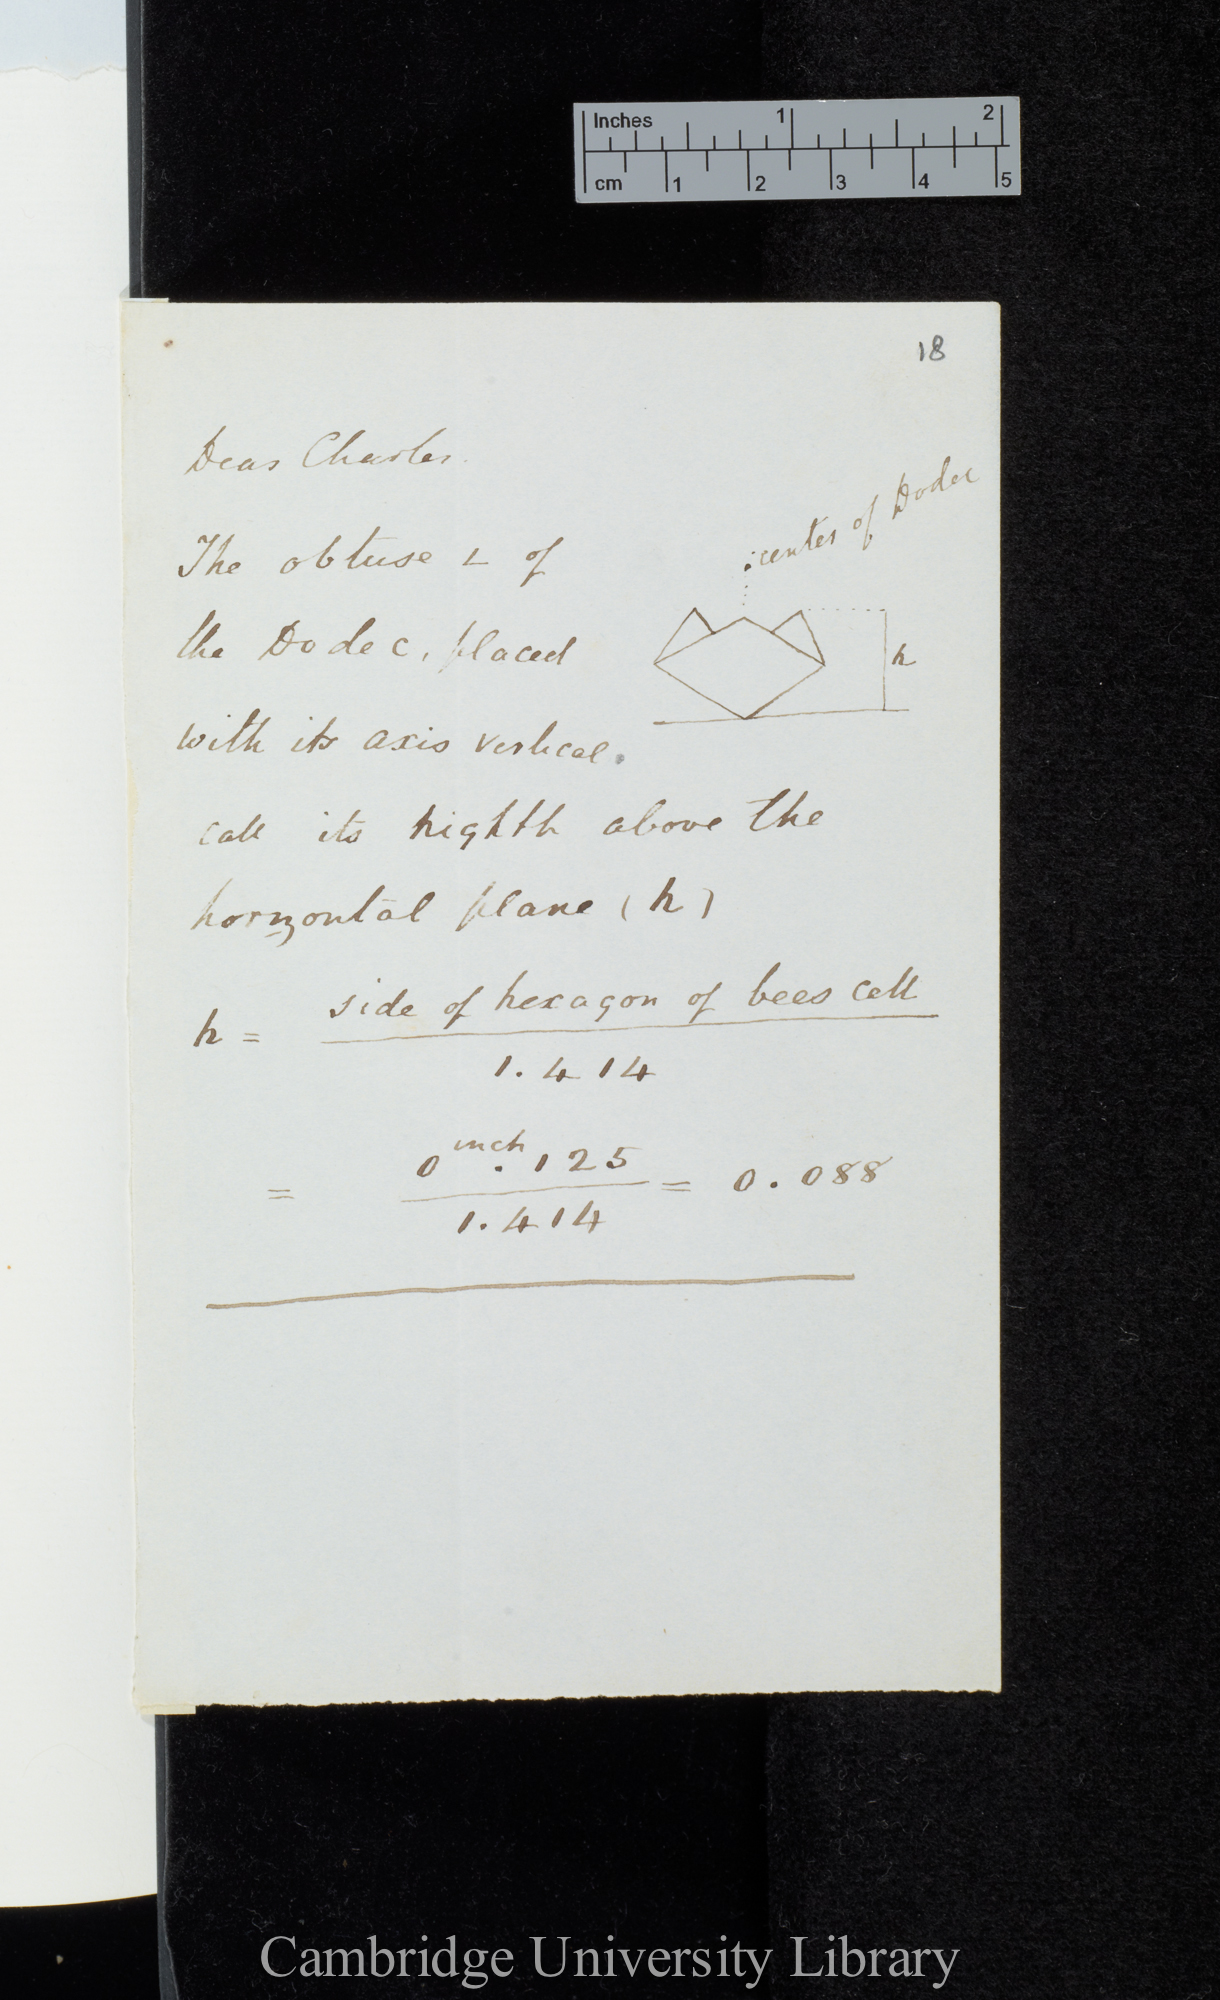 Inches 1 2
cm 1 2 3 4 5
18
Dear Charles.
center of Dodec
The obtuse ∟ of
the Dodec, placed
h
with its axis vertical.
call its highth above the
horizontal plane (h)
h = side of hexagon of bees cell
1.414
= 0 inch .125 = 0.088
1.414
Cambridge University Library